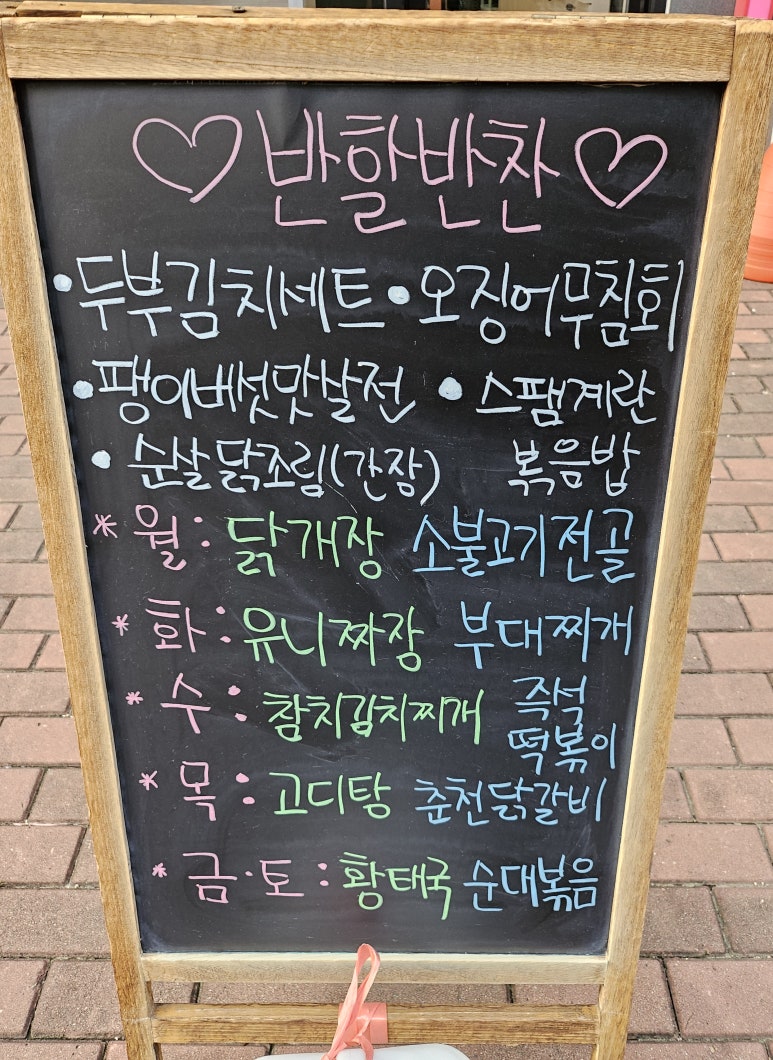 ♡ 반할반찬 ♡
• 두부김치세트 • 오징어무침회
• 팽이버섯맛살전 • 스팸계란
• 순살닭조림(간장) 볶음밥
* 월 : 닭개장 소불고기전골
* 화 : 유니짜장 부대찌개
* 수 : 참치김치찌개 즉석
떡볶이
* 목 : 고디탕 춘천닭갈비
* 금·토 : 황태국 순대볶음